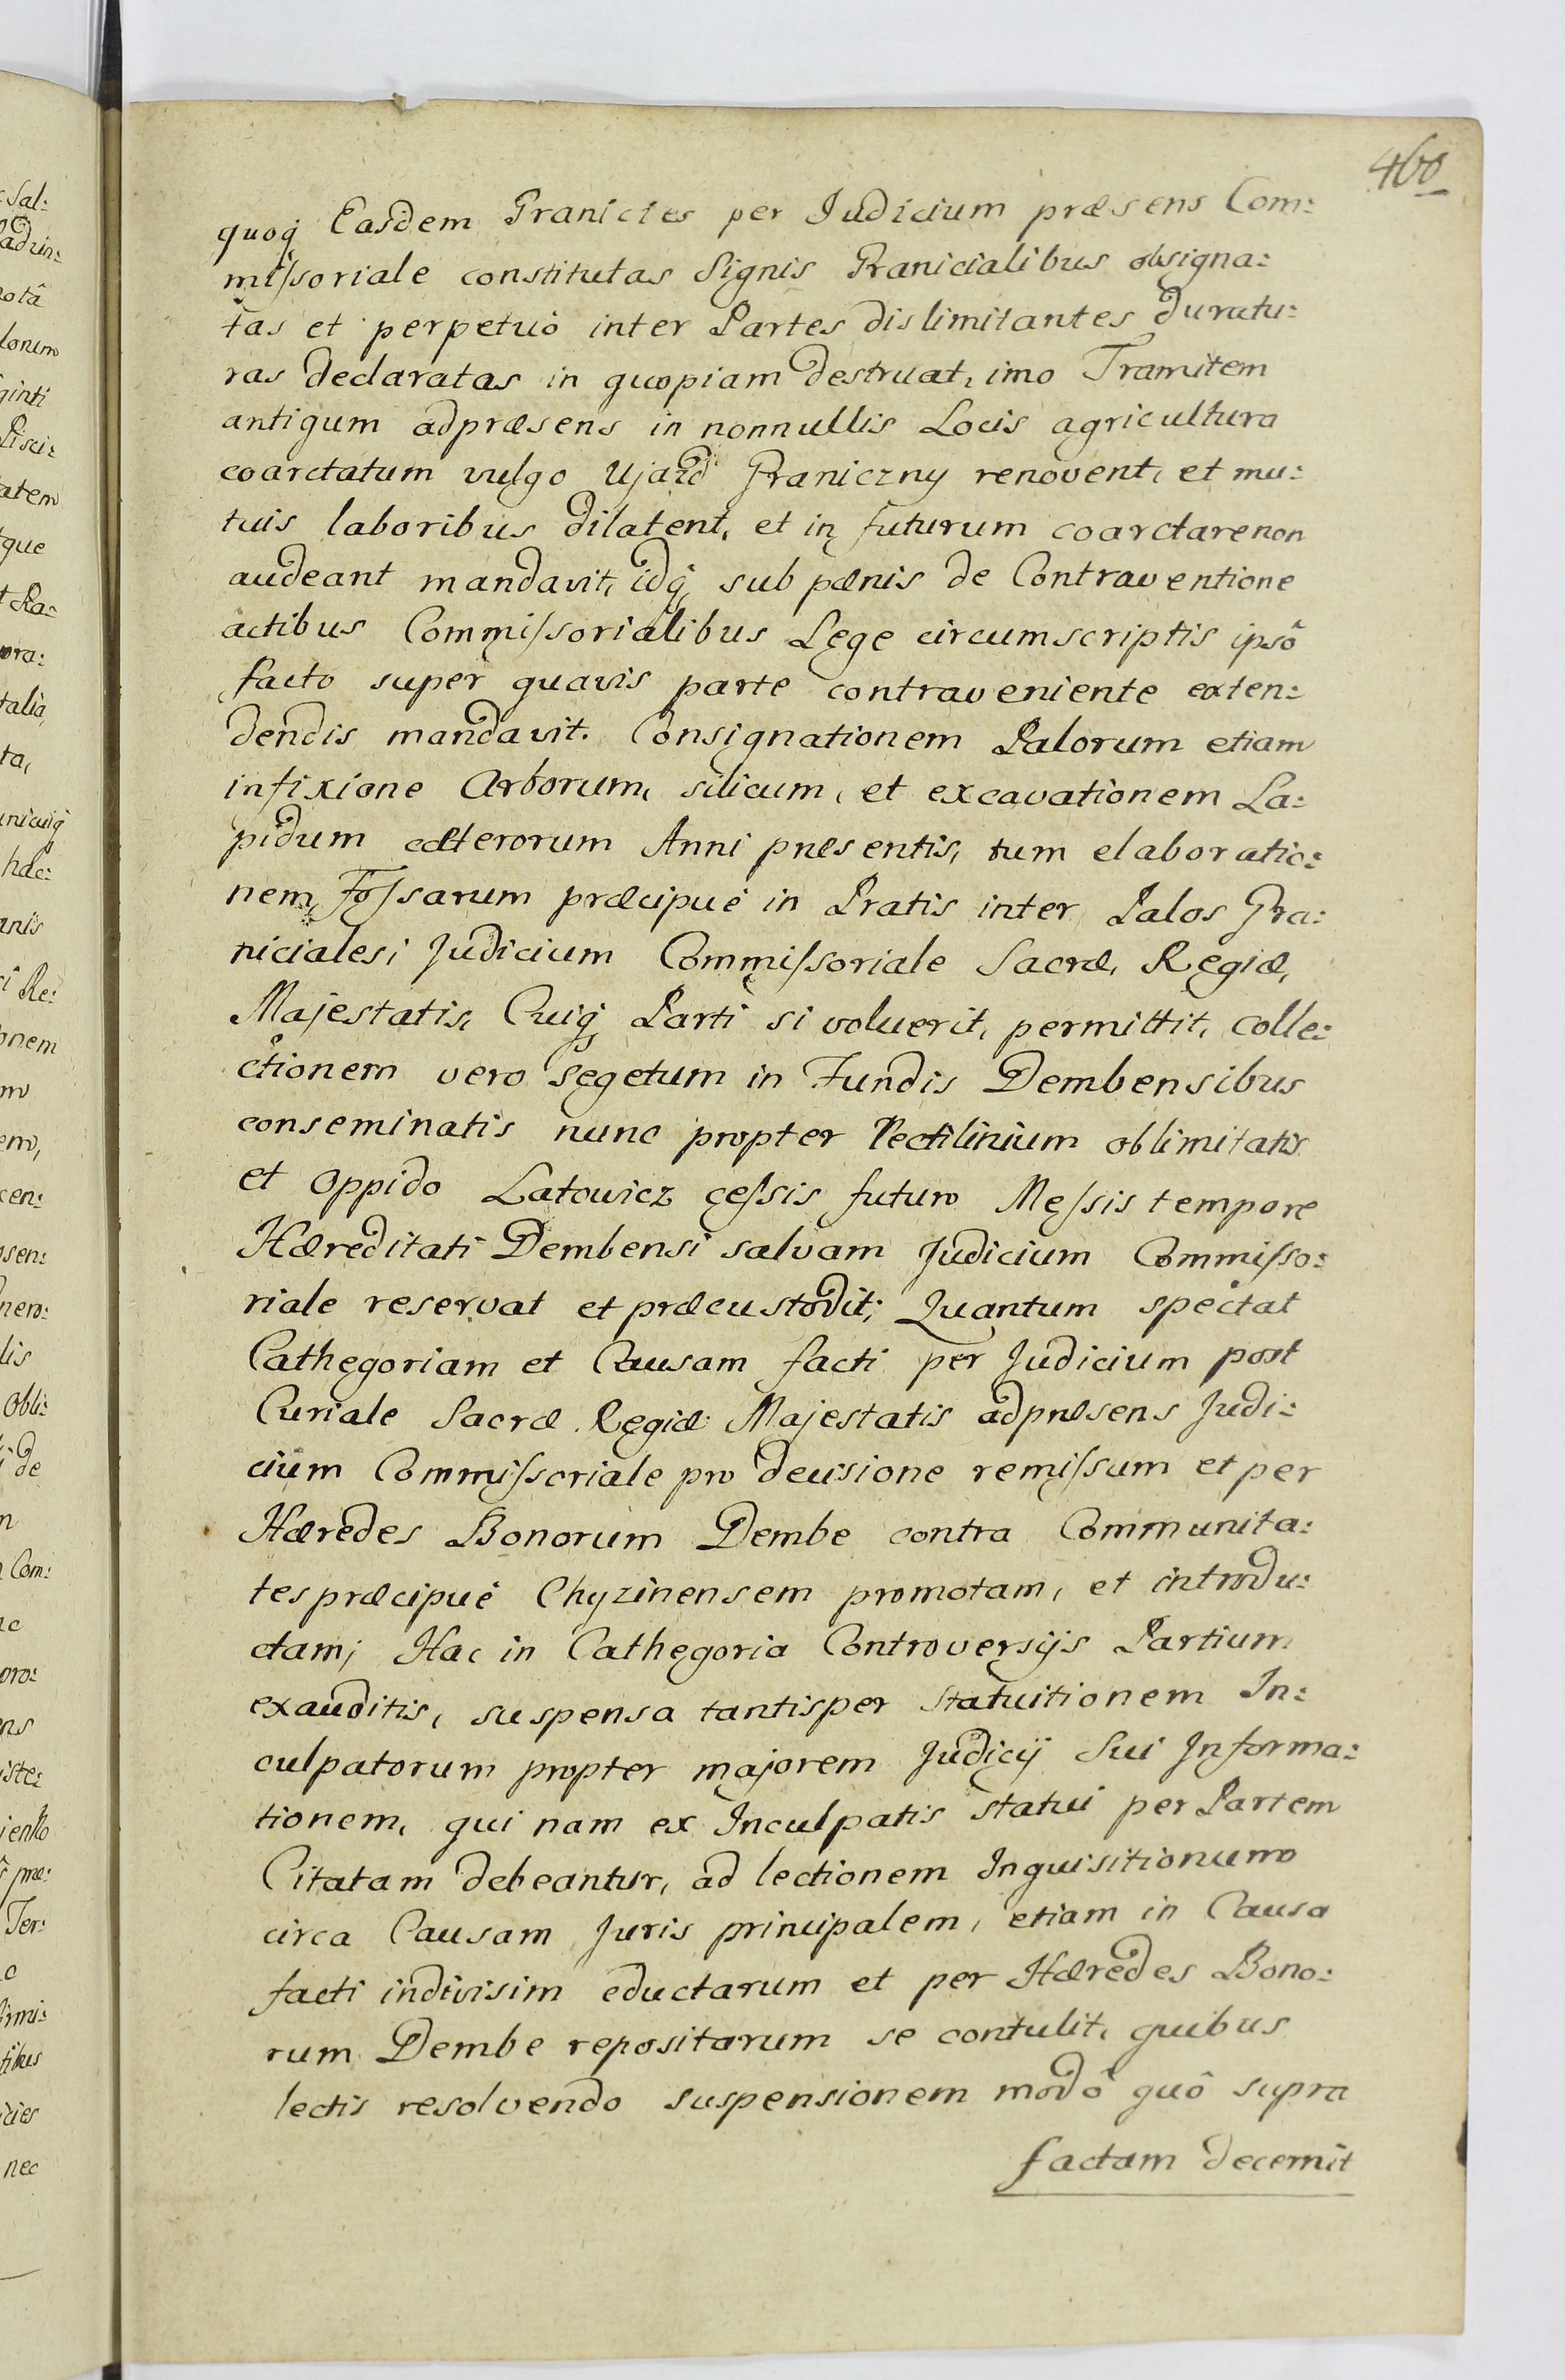 460
quoq Easdem Granicies per Judicium præsens Com:
mißoriale constitutas Signis Granicialibus obsigna:
tas et perpetuò inter Partes dislimitantes duratu:
ras declaratas in quopiam destruat, imo Tramitem
antiquum adpræsens in nonnullis Locis agricultura
coarctatum vulgo Ujazd Graniczny renovent, et mu:
tuis laboribus dilatent, et in futurum coarctare non
audeant mandavit, idq, sub pænis de Contraventione
actibus Commißorialibus Lege circumscriptis ipsô
facto super quavis parte contraveniente exten:
dendis mandavit. Consignationem Palorum etiam
infixione Arborum, silicum, et excavationem La:
pidum cæterorum Anni præsentis, tum elaboratio:
nem Foßarum præcipuè in Pratis inter Palos Gra:
niciales; Judicium Commißoriale Sacræ, Regiæ,
Majestatis, Cuiq Parti si voluerit, permittit, colle:
ctionem vero Segetum in Fundis Dembensibus
conseminatis nunc propter Rectilinium oblimitatis
et Oppido Latowicz ceßis futuro Meßis tempore
Hæreditati Dembensi salvam Judicium Commißo:
riale reservat et præcustodit; Quantum spectat
Cathegoriam et Causam facti per Judicium post
Curiale Sacræ Regiæ Majestatis adpræsens Judi:
cium Commißoriale pro decisione remißum et per
Hæredes Bonorum Dembe contra Communita:
tes præcipuè Chyzinensem promotam, et introdu:
ctam; Hac in Cathegoria Controversijs Partium
exauditis, suspensa tantisper statuitionem In:
culpatorum propter majorem Judicij Sui Informa:
tionem, qui nam ex Inculpatis statui per Partem
Citatam debeantur, ad lectionem Inquisitionum
circa Causam Juris principalem, etiam in Causa
facti indivisim eductarum et per Hæredes Bono:
rum Dembe repositarum se contulit, quibus
lectis resolvendo suspensionem modô quô supra
factam decernit